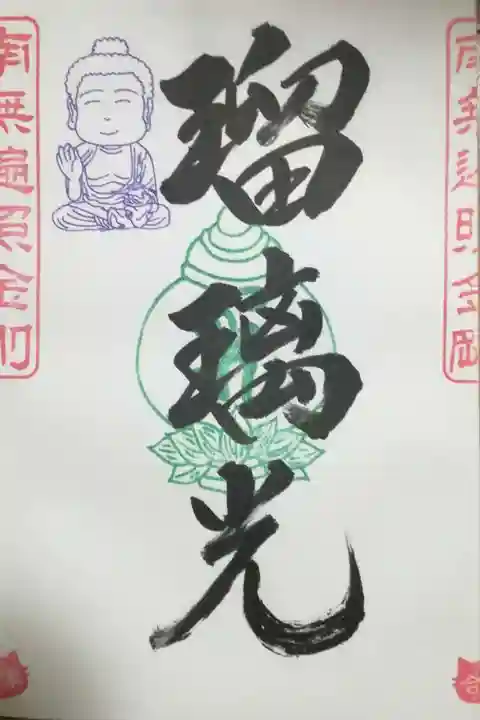 瑠璃光
南無遍照金剛
南無遍照金剛